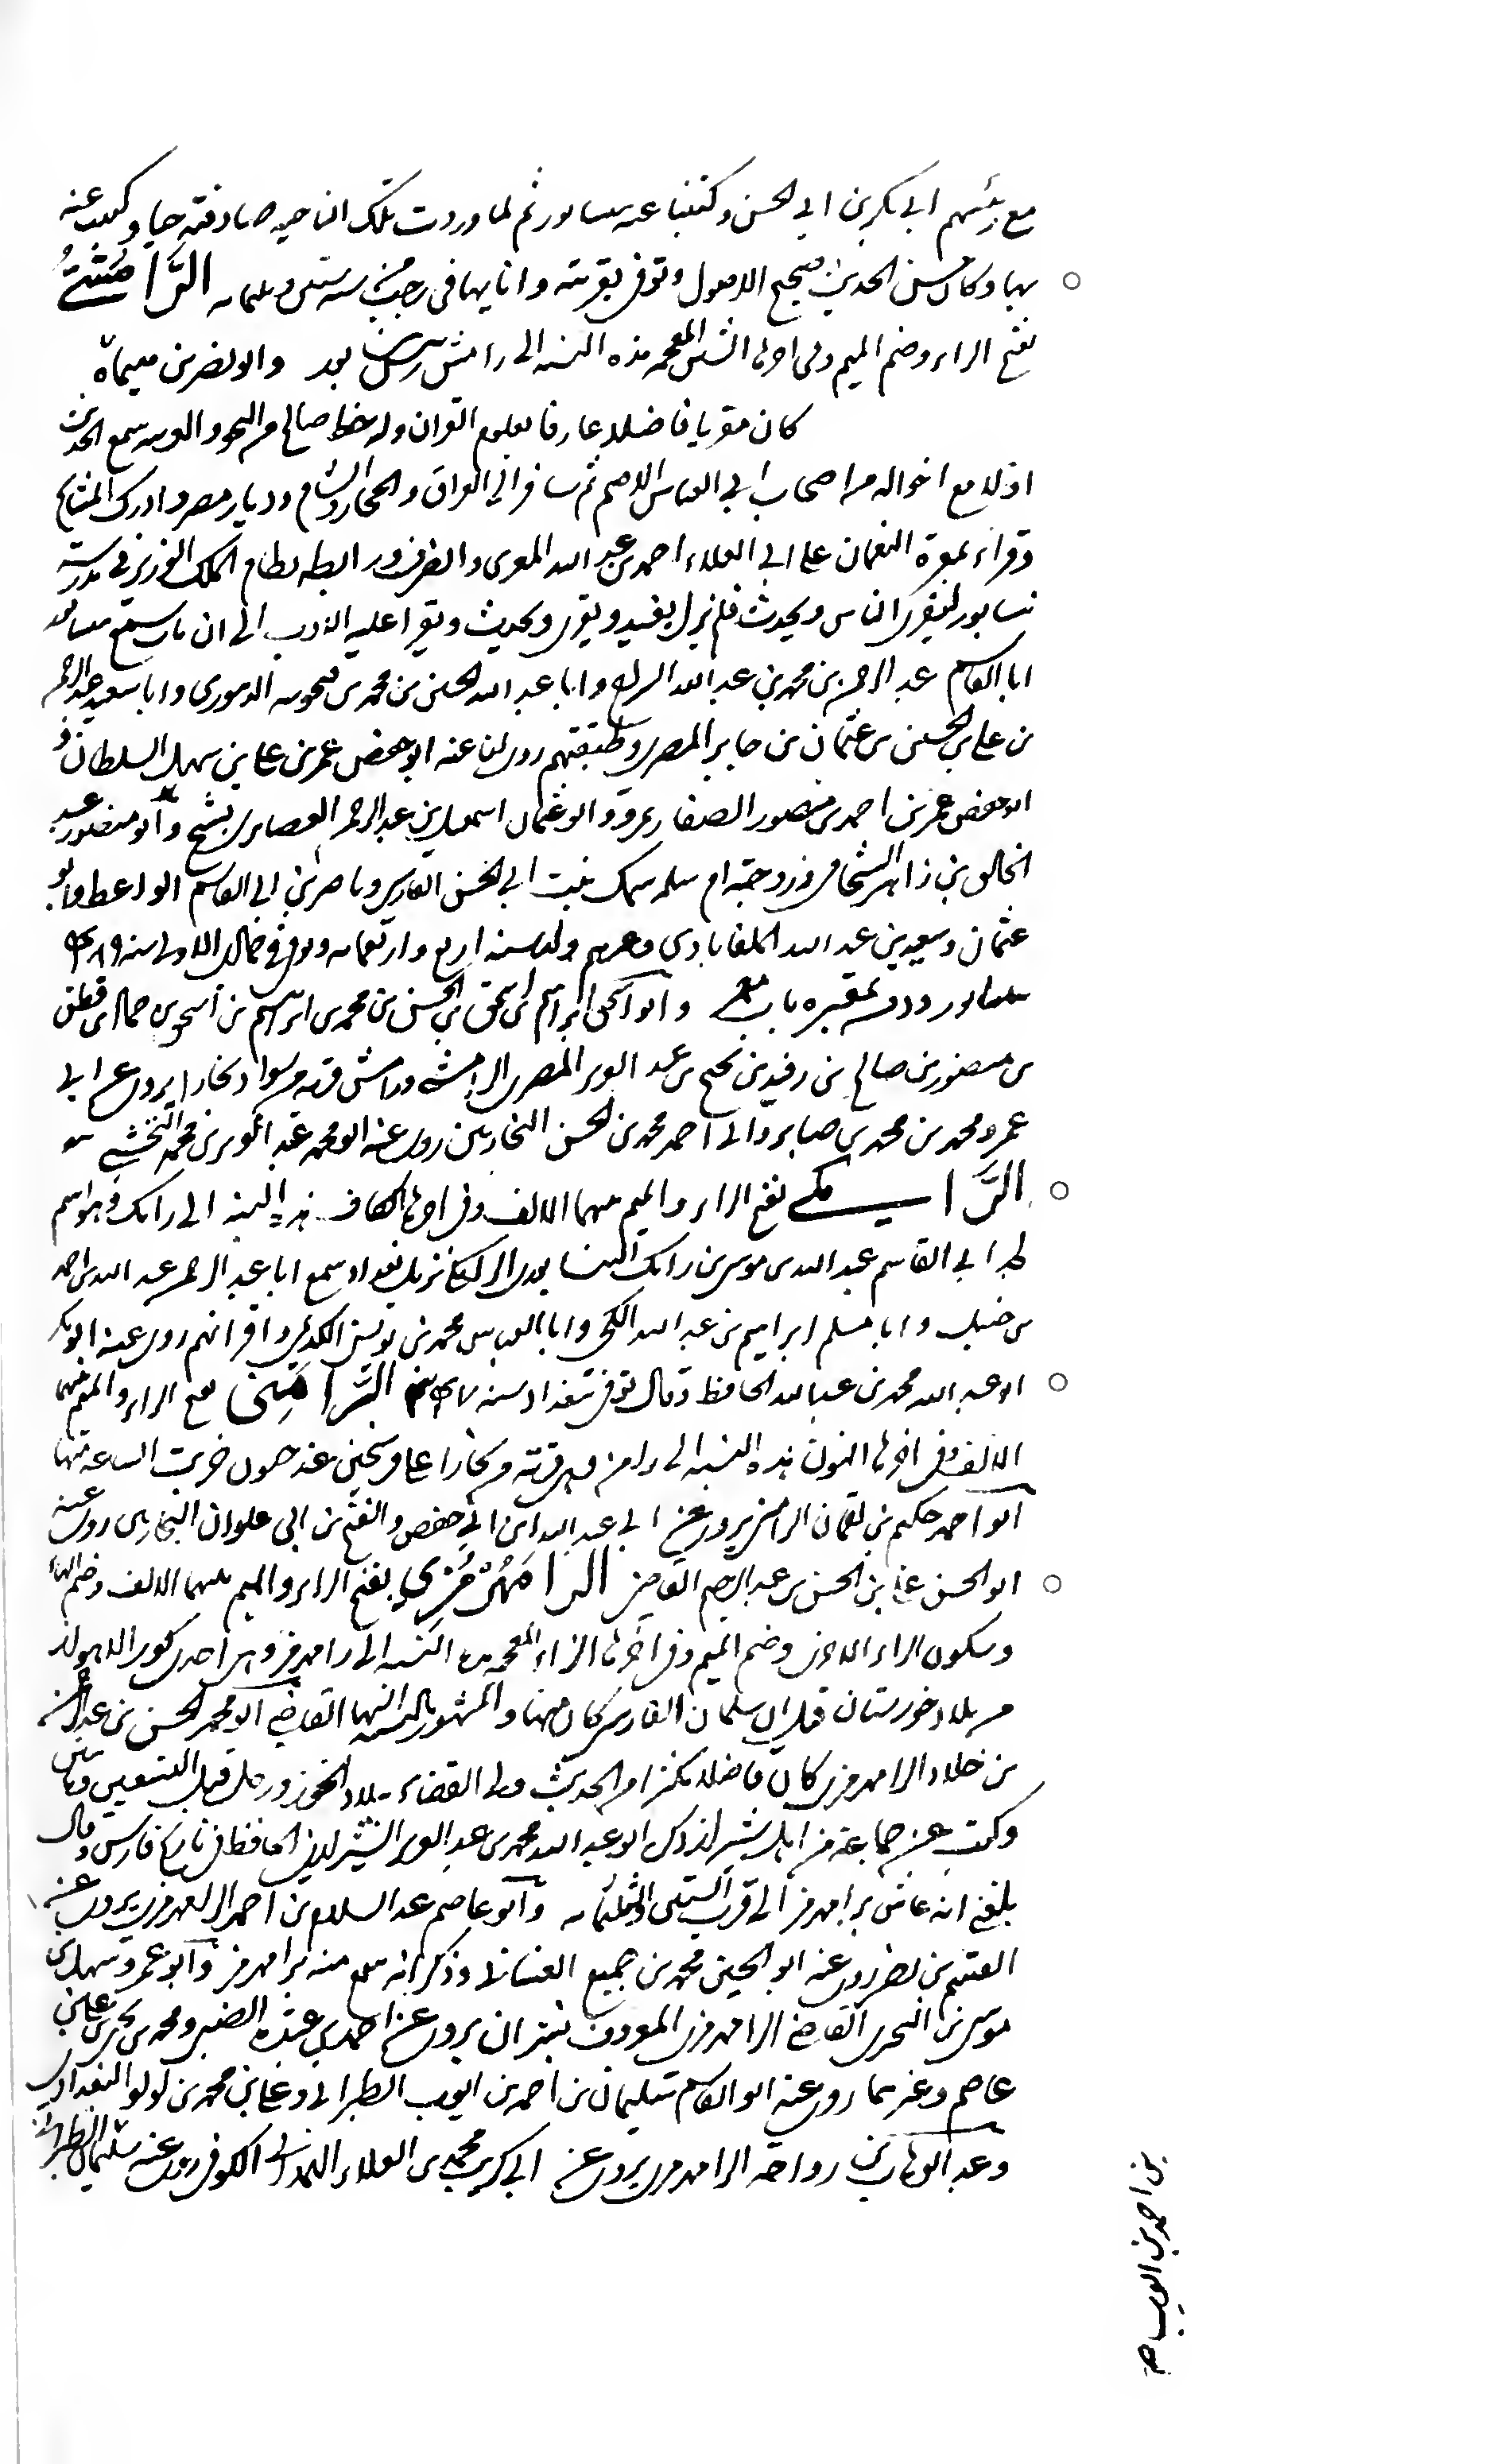 مع رئيسهم ابي بكر بن ابي الحسن وكتبنا عنه بنيسابور ثم لما وردت تلك الناحيه صادفته حيا وكتبت عنه
بها وكان حسن الحديث صحيح الاصول وتوفى بقريته وانا بها في رجب سنة ستين وثلثمائه الرَّامُشيُّ
بفتح الراء وضم الميم وفي اخرها الشين المعجمه هذه النسبه الى رامش والو نصر بن
كان مقريا فاضلا عارفا بعلوم القران وله حظ صالح من النحو والعربيه سمع الحديث
اولا مع اخواله من اصحاب ابي العباس الاصم ثم سافر الى العراق والحجاز والشام وديار مصر وادرك المشايخ
وقراء بمعرة النعمان على ابي العلاء احمد بن عبد الله المعرى وانصرف ورابطه نظام الملك الوزير في مدرسته
نسابور ليقرى الناس ويحدث فلم يزل يفيد ويقرى ويحدث ويقرا عليه الادب الى ان مات سمع بنيسابور
ابا القاسم عبد الرحمن بن محمد بن عبد الله السراج وابا عبد الله الحسين بن محمد بن فنجويه الدينورى وابا سعيد عبد الرحمن
بن على بن الحسين بن عثمان بن جابر المصرى وطبقتهم روى لنا عنه ابو حفص عمر بن على بن سهل السلطان و
ابو حفص عمر بن احمد بن منصور الصفار بمرو وابو عثمان اسمعيل بن عبد الرحمن العصايدى وابو منصور عبد
الخالق بن زاهر الشحامى وزوجته ام سلمه ستيك بنت ابي الحسن الفارسى وناصر بن ابي القاسم الواعظ وابو
عثمان وسعيد بن عبد الله الملقابادى وغيرهم ولد سنه اربع واربعمايه وتوفى في جمادى الاولى سنه ٤٨٩
بنيسابور ودفن بمقبره باب وابو اسحق ابراهيم بن اسحق بن الحسن بن محمد بن ابراهيم بن اسحق بن
بن منصور بن صالح بن رفيد بن نجيح بن عبد العزيز المصرى الرامشى ورامش قريه من سواد بخارا يروى عن ابي
عمرو محمد بن محمد بن صابر وابي احمد محمد بن الحسن البخاريين روى عنه ابو محمد عبد العزيز بن محمد النخشبي
الرَّامَكي بفتح الراء والميم بينهما الالف وفي اخرها الكاف هذه النسبه الى رامك وهو اسم
لجد ابي القاسم عبد الله بن موسى بن رامك النيسابورى الرامكى نزيل بغداد سمع ابا عبد الرحمن عبد الله بن احمد
بن حنبل وابا مسلم ابراهيم بن عبد الله الكجى وابا العباس محمد بن يونس الكديمى واقرانهم روى عنه ابو بكر
ابو عبد الله محمد بن عبد الله الحافظ وقال توفى ببغداد سنه الرَّامَِنى بفتح الراء والميم بينهما
الالف وفي اخرها النون هذه النسبه الى رامن وهى قريه من بخارا على فرسخين عند خربت الساعه منها
ابو احمد حكيم بن لقمان الرامنى يروى عن ابي عبد الله ابن ابي حفص والفتح بن ابي علوان البخاريين روى عنه
ابو الحسن على بن الحسن بن عبد الرحيم القاضى الرامَهُرْمُزي بفتح الراء والميم بينهما الالف وضم الهاء
وسكون الراء الاخرى وضم الميم وفي اخرها الزاء المعجمه هذه النسبه الى رامهرمز وهى احدى كور الاهواز
من بلاد خوزستان قيل ان سلمان الفارسى كان منها والمشهور بالنسبه اليها القاضى ابو محمد الحسن بن عبد الرحمن
بن خلاد الرامهرمزى كان فاضلا مكثرا من الحديث ولى القضاء ببلاد الخوز ورحل قبل التسعين ومائتين
وكتب عن جماعة من اهل شيراز ذكره ابو عبد الله محمد بن عبد العزيز الشيرازى الحافظ في تاريخ فارس وقال
بلغنى انه عاش برامهرمز الى قرب الستين والثلثمائه وابو عاصم عبد السلام بن احمد الرامهرمزى يروى عن
القسم بن نصر روى عنه ابو الحسين محمد بن جميع الغسانى وذكر انه سمع منه برامهرمز وابو عمرو سهل بن
موسى بن البحترى القاضى الرامهرمزى المعروف بشيران يروى عن احمد بن عبدة الضبى ومحمد بن يحيى بن على بن
عاصم وغيرهما روى عنه ابو القاسم سليمان بن احمد بن ايوب الطبرانى وعلى بن محمد بن لولو البغدادى
وعبد الوهاب بن رواحه الرامهرمزى يروى عن ابي كريب محمد بن العلاء الهمدانى الكوفى روى عنه سليمان الطبرانى
بن احمد بن ايوب صح